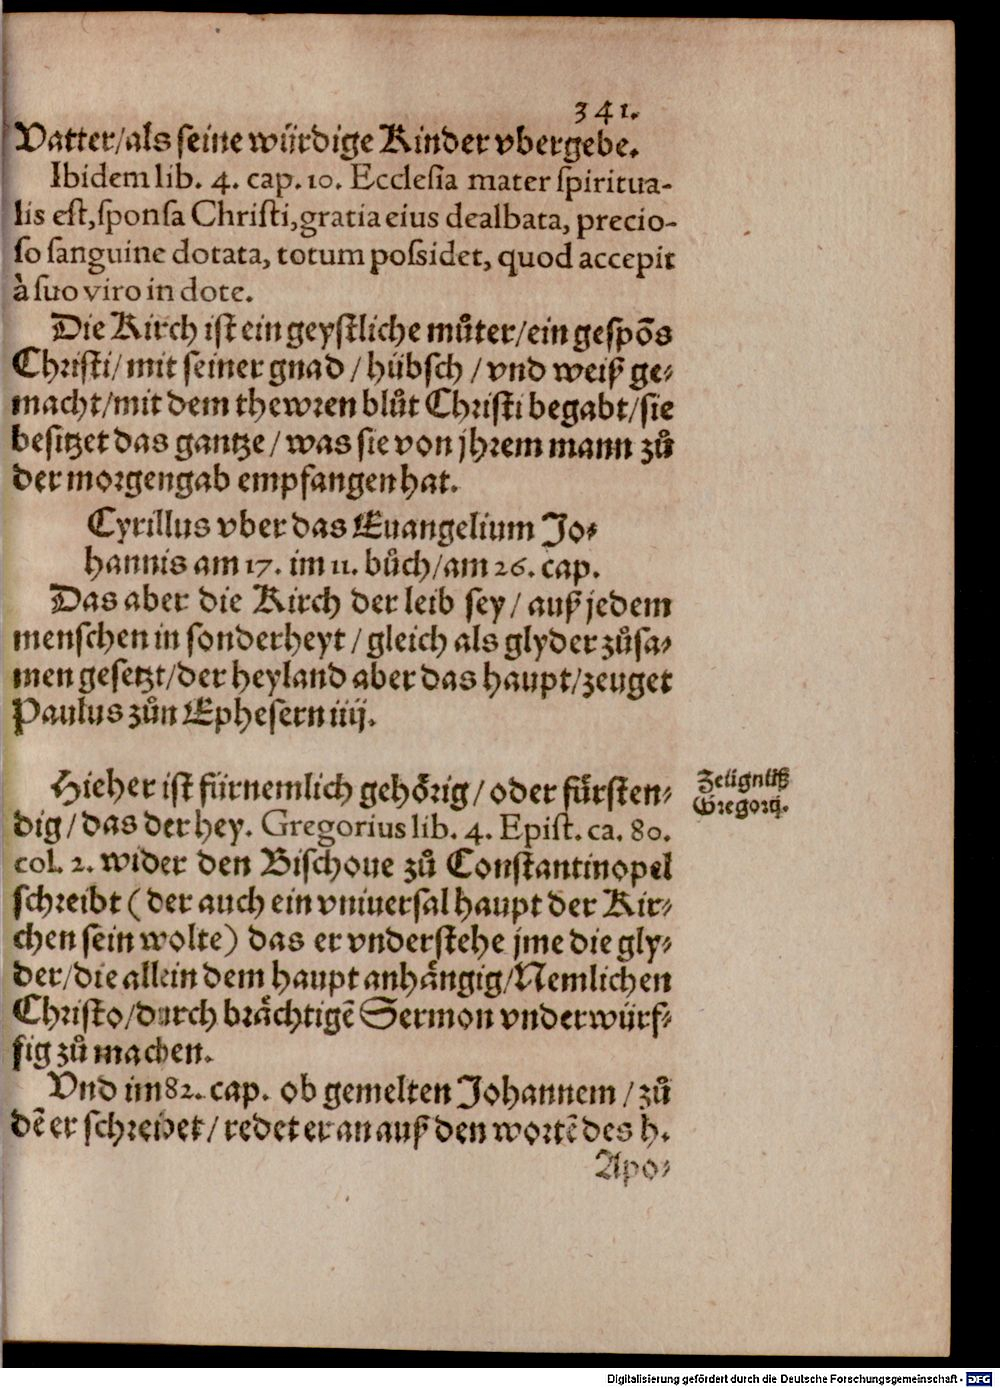 341.
Vatter/als seine würdige Kinder vbergebe.
Ibidem lib. 4. cap. 10. Ecclesia mater spiritua-
lis est, sponsa Christi, gratia eius dealbata, precio-
so sanguine dotata, totum possidet, quod accepit
à suo viro in dote.
Die Kirch ist ein geystliche můter/ein gespõs
Christi/mit seiner gnad/hübsch/vnd weiß ge-
macht/mit dem thewren blůt Christi begabt/sie
besitzet das gantze/was sie von jhrem mann zů
der morgengab empfangen hat.
Cyrillus vber das Euangelium Jo-
hannis am 17. im 11. bůch/am 26. cap.
Das aber die Kirch der leib sey/auß jedem
menschen in sonderheyt/gleich als glyder zůsa-
men gesetzt/der heyland aber das haupt/zeuget
Paulus zůn Ephesern iiij.
Hieher ist fürnemlich gehörig/oder fürsten-
dig/das der hey. Gregorius lib. 4. Epist. ca. 80.
col. 2. wider den Bischoue zů Constantinopel
schreibt (der auch ein vniuersal haupt der Kir-
chen sein wolte) das er vnderstehe jme die gly-
der/die allein dem haupt anhängig/Nemlichen
Christo/durch brächtigẽ Sermon vnderwürf-
fig zů machen.
Vnd im 82. cap. ob gemelten Johannem/zů
dẽ er schreibet/redet er an auß den wortẽ des h.
Apo-
Zeügnüß
Gregorij.
Digitalisierung gefördert durch die Deutsche Forschungsgemeinschaft - DFG